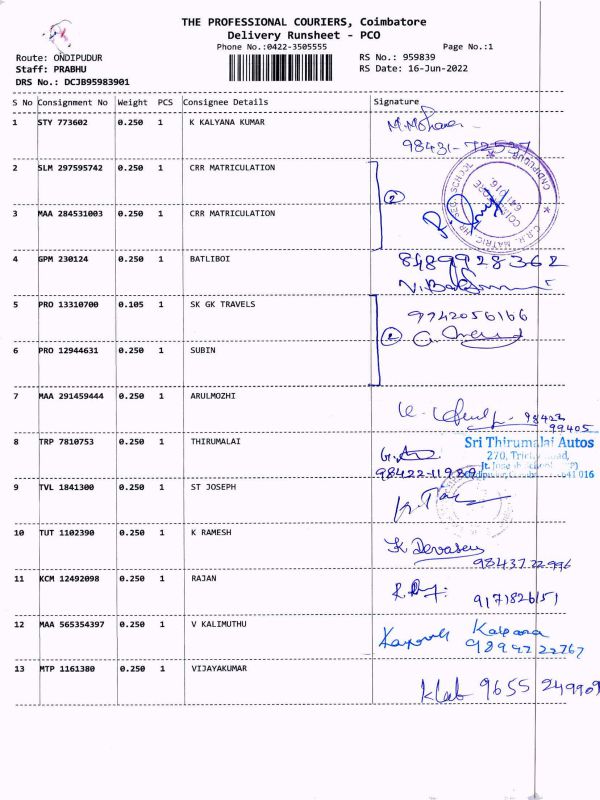 THE PROFESSIONAL COURIERS, Coimbatore
Delivery Runsheet - PCO
Phone No.:0422-3505555 Page No.:1
Route: ONDIPUDUR RS No.: 959839
Staff: PRABHU RS Date: 16-Jun-2022
DRS No.: DCJB95983901
S No Consignment No Weight PCS Consignee Details Signature
1 STY 773602 0.250 1 K KALYANA KUMAR
98431-72537
2 SLM 297595742 0.250 1 CRR MATRICULATION
2
3 MAA 284531003 0.250 1 CRR MATRICULATION
C.R.R. MATRIC HR. SEC. SCHOOL
4 GPM 230124 0.250 1 BATLIBOI 8489928362
5 PRO 13310700 0.105 1 SK GK TRAVELS 9742056166
2
6 PRO 12944631 0.250 1 SUBIN
7 MAA 291459444 0.250 1 ARULMOZHI
99405
8 TRP 7810753 0.250 1 THIRUMALAI Sri Thirumalai Autos
270,
98422-11989 641 016
9 TVL 1841300 0.250 1 ST JOSEPH
10 TUT 1102390 0.250 1 K RAMESH
98437 22996
11 KCM 12492098 0.250 1 RAJAN
9171826151
12 MAA 565354397 0.250 1 V KALIMUTHU Kalpana
9894722767
13 MTP 1161380 0.250 1 VIJAYAKUMAR
9655 249909